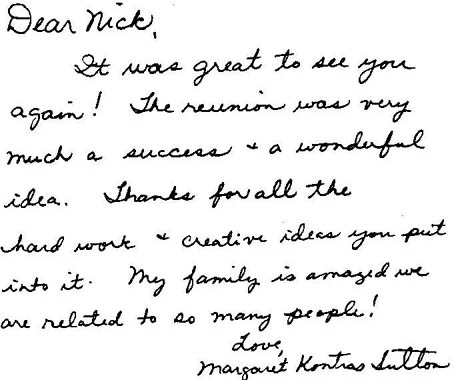 Dear Nick,
It was great to see you
again! The reunion was very
much a success + a wonderful
idea. Thanks for all the
hard work + creative ideas you put
into it. My family is amazed we
are related to so many people!
Love,
Margaret Kontras Sutton